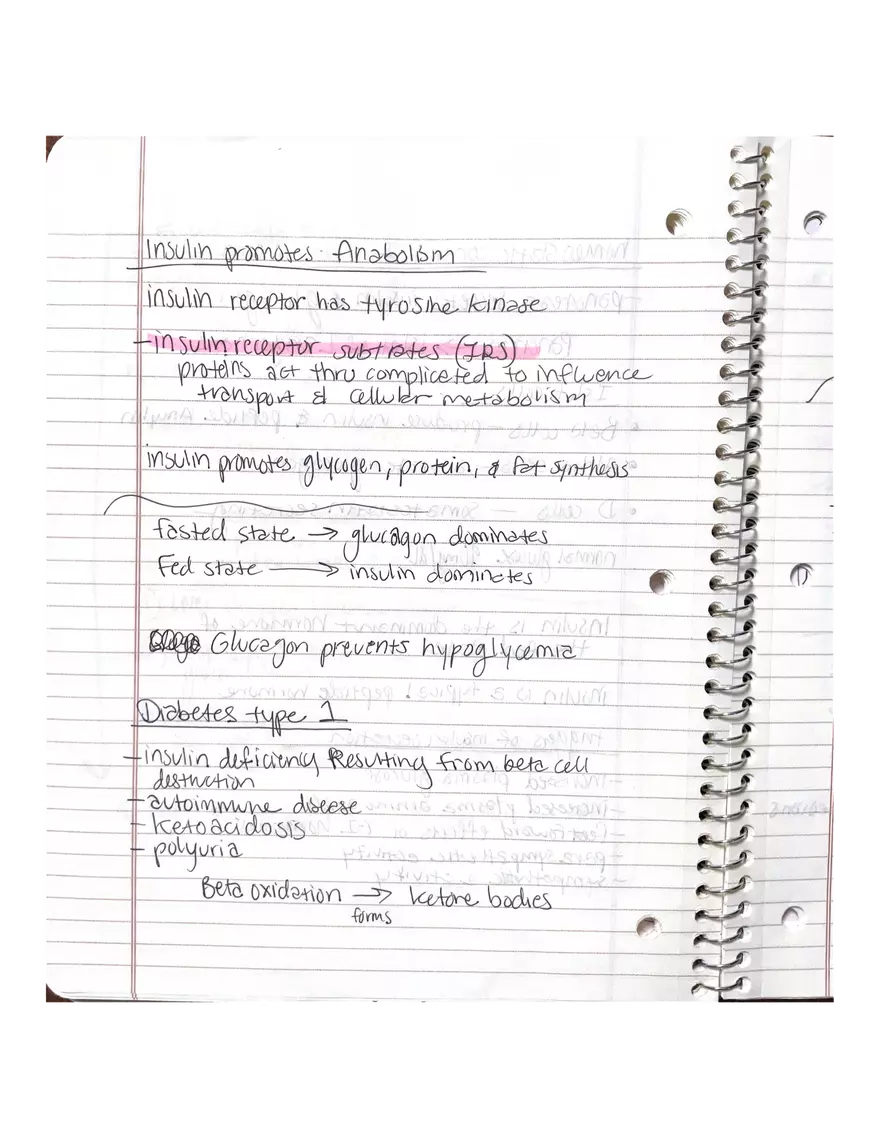 Insulin promotes Anabolism
insulin receptor has tyrosine kinase
- insulin receptor substrates (IRS)
proteins act thru complicated to influence
transport & cellular metabolism
insulin promotes glycogen, protein, & fat synthesis
fasted state → glucagon dominates
Fed state → insulin dominates
Glucagon prevents hypoglycemia
Diabetes type 1
- insulin deficiency Resulting from beta cell
destruction
- autoimmune disease
- ketoacidosis
- polyuria
Beta oxidation → ketone bodies
forms